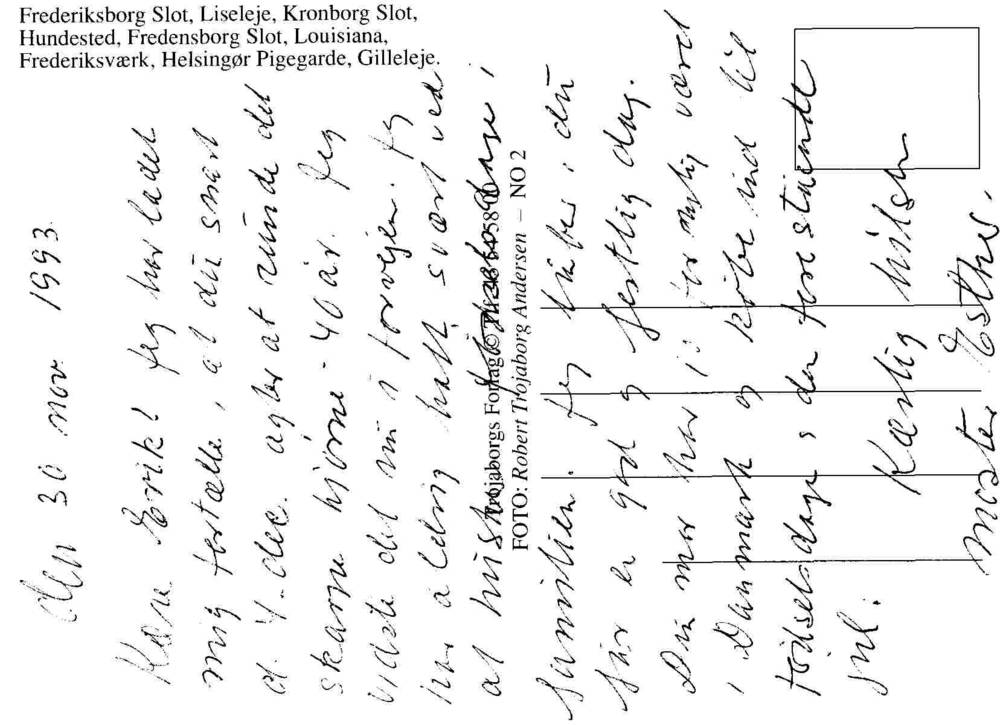 Frederiksborg Slot, Liseleje, Kronborg Slot,
Hundested, Fredensborg Slot, Louisiana,
Frederiksværk, Helsingør Pigegarde, Gilleleje.
den 30 nov. 1993.
Kære Erik! Jeg har ladet
mig fortælle, at du snart
d. 4. dec. agter at runde det
skarpe hjørne - 40 år. Jeg
vidste det nu i forvejen. Jeg
har aldrig haft svært ved
at huske fødselsdage i
familien. Jeg håber, du
får en god og festlig dag.
Du mor har jo før nylig været
i Danmark og købe ind til
fødselsdage og den forestående
jul.
Kærlig hilsen
Moster Esther.
Trojaborgs Forlag ©
FOTO: Robert Trojaborg Andersen – NO 2